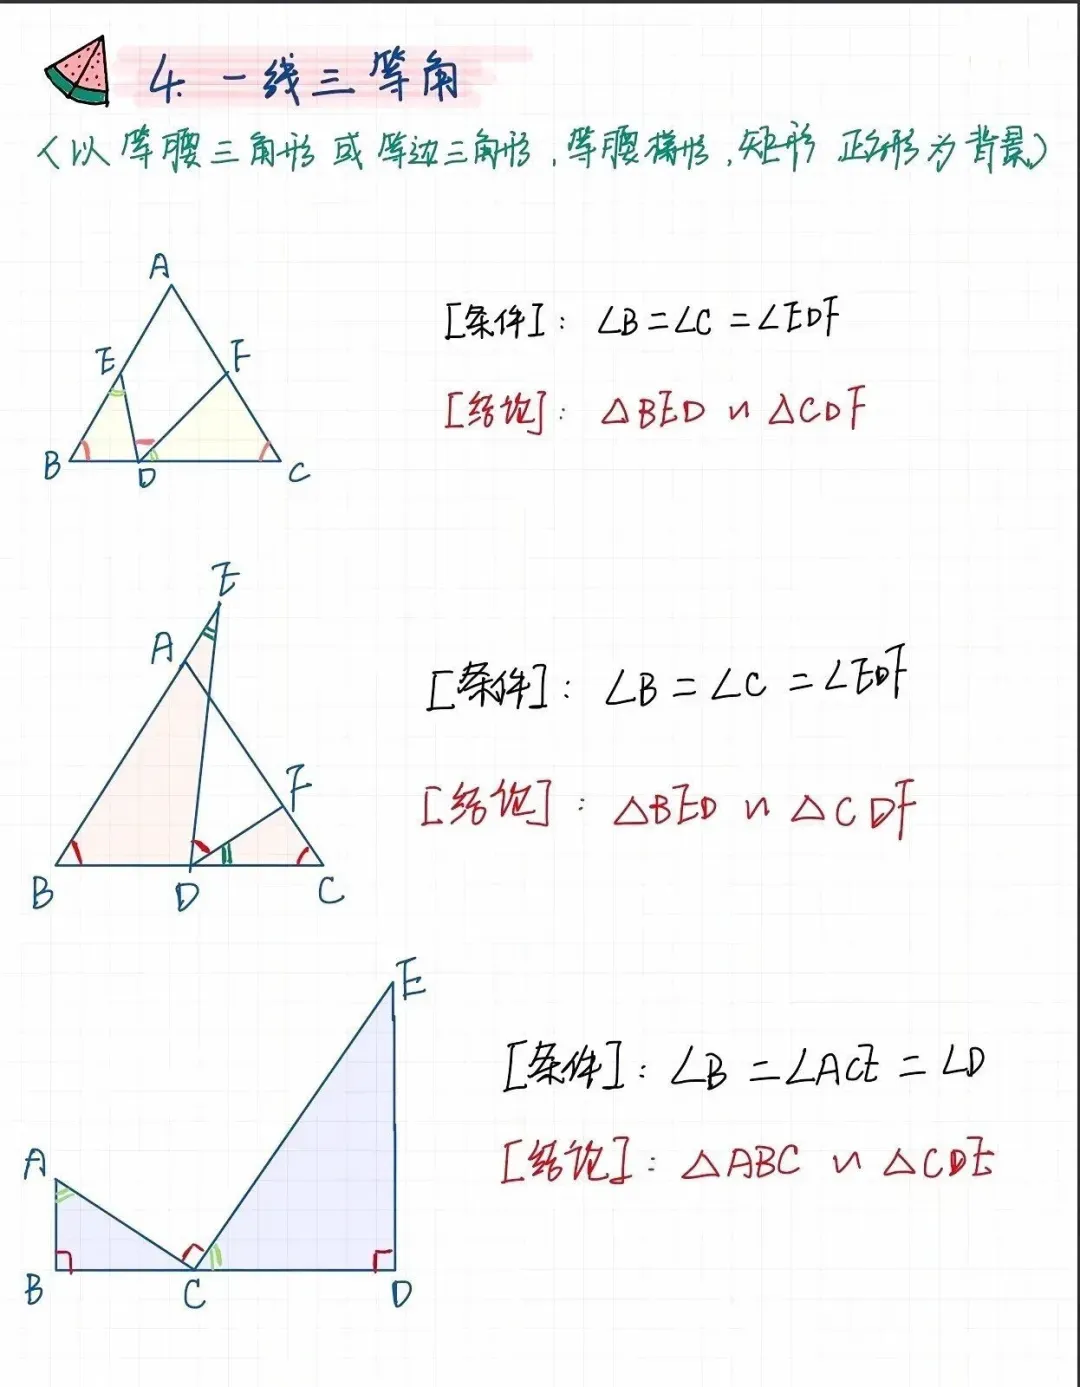 4. 一线三等角
(以等腰三角形或等边三角形,等腰梯形,矩形 正方形为背景)
A
E F
B D C
[条件]: ∠B=∠C=∠EDF
[结论]: △BED∽△CDF
E
A
F
B D C
[条件]: ∠B=∠C=∠EDF
[结论]: △BED∽△CDF
E
A
B C D
[条件]: ∠B=∠ACE=∠D
[结论]: △ABC∽△CDE